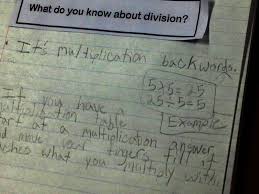 What do you know about division?
• It's multiplication backwards.
5x5=25
25÷5=5
Example
If you have a
multiplication table
start at a multiplication answer
and move your fingers till it
what you multiply with